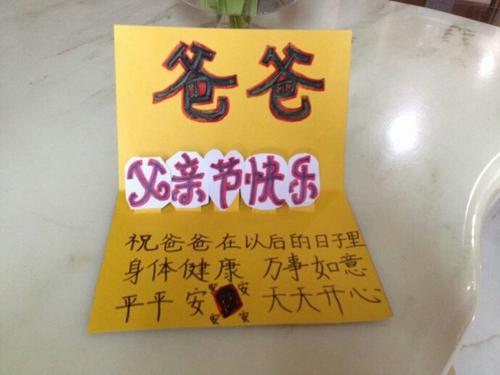 爸爸
父亲节快乐
祝爸爸在以后的日子里
身体健康 万事如意
平平安 天天开心
安 安
安 安